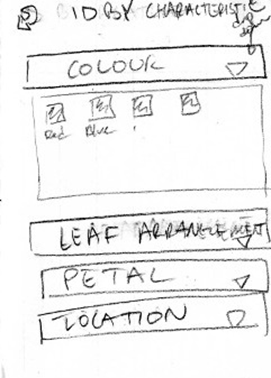 5 ID BY CHARACTERISTIC
COLOUR
Red Blue
LEAF ARRANGEMENT
PETAL
LOCATION